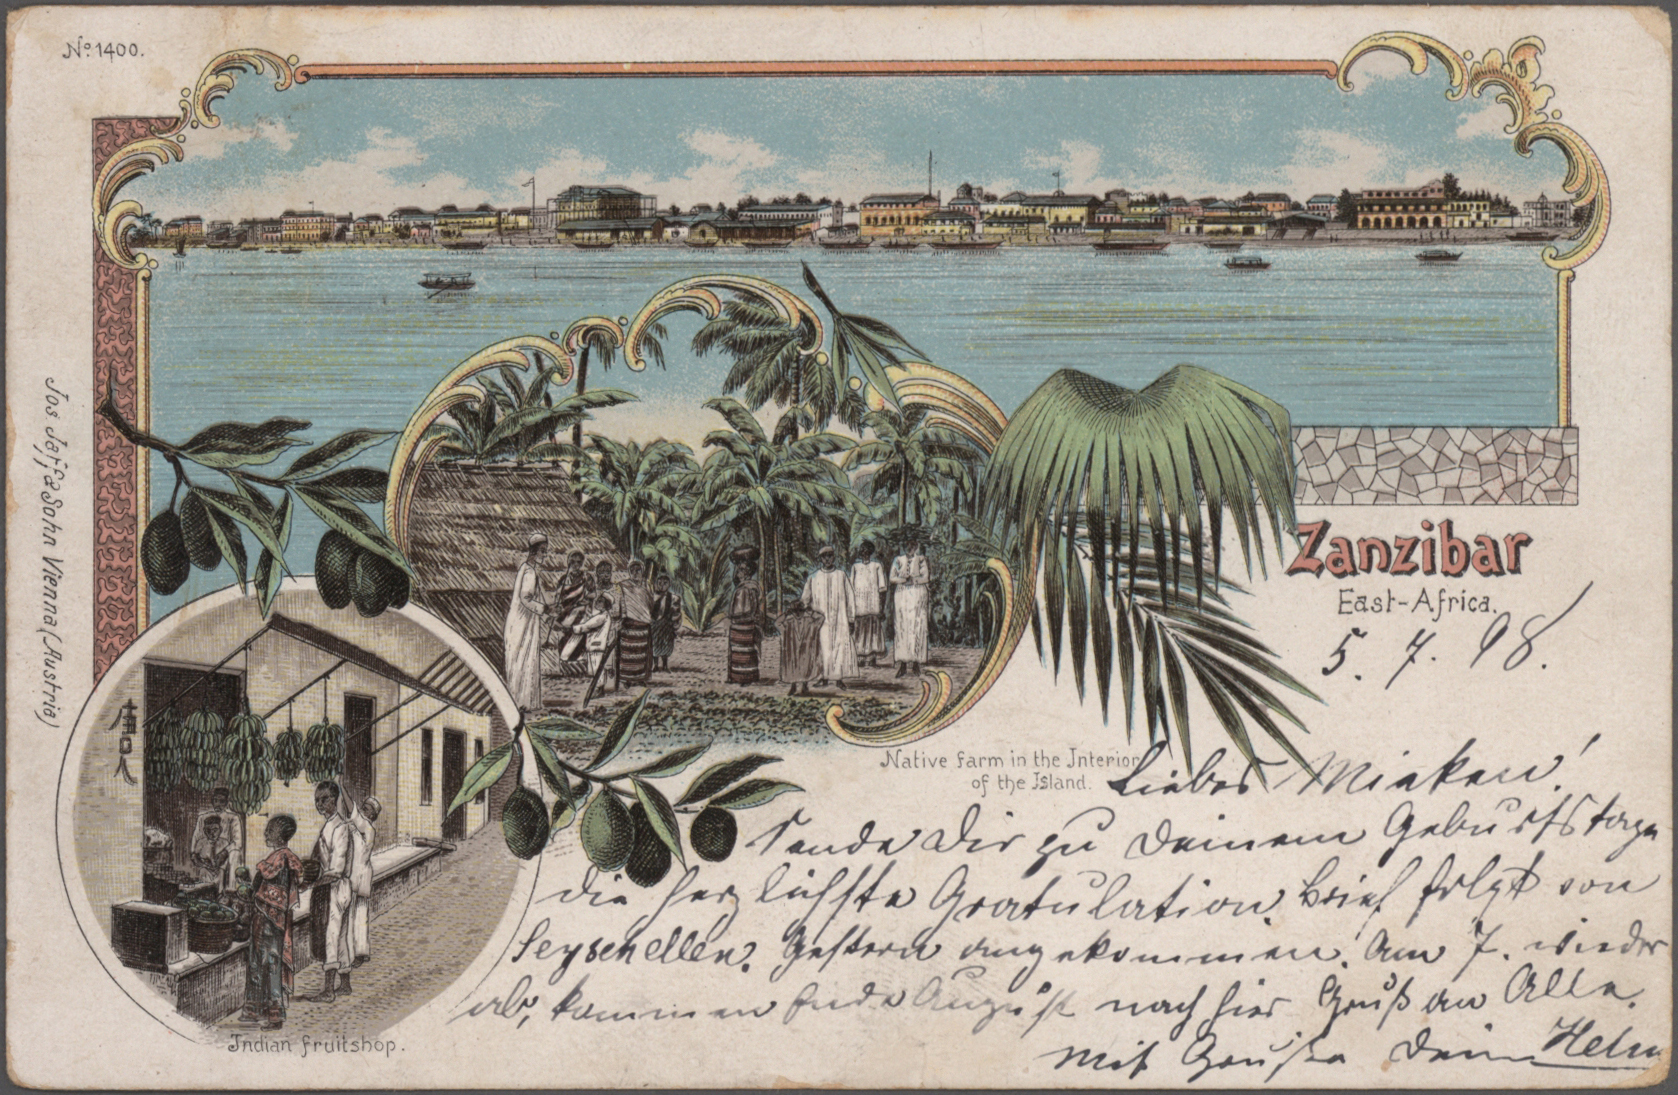 No. 1400.
Jos. Jaffé Sohn Vienna (Austria)
Zanzibar
East-Africa.
5. 7. 98.
Native farm in the Interior
of the Island.
Liebes Mieken!
Sende Dir zu Deinem Geburtstage
die herzlichste Gratulation. Brief folgt von
Seyschellen. Gestern angekommen. Am 7. wieder
ab, kommen Ende August nach hier Gruß an Alle.
Mit Gruße Dein
Indian fruitshop.